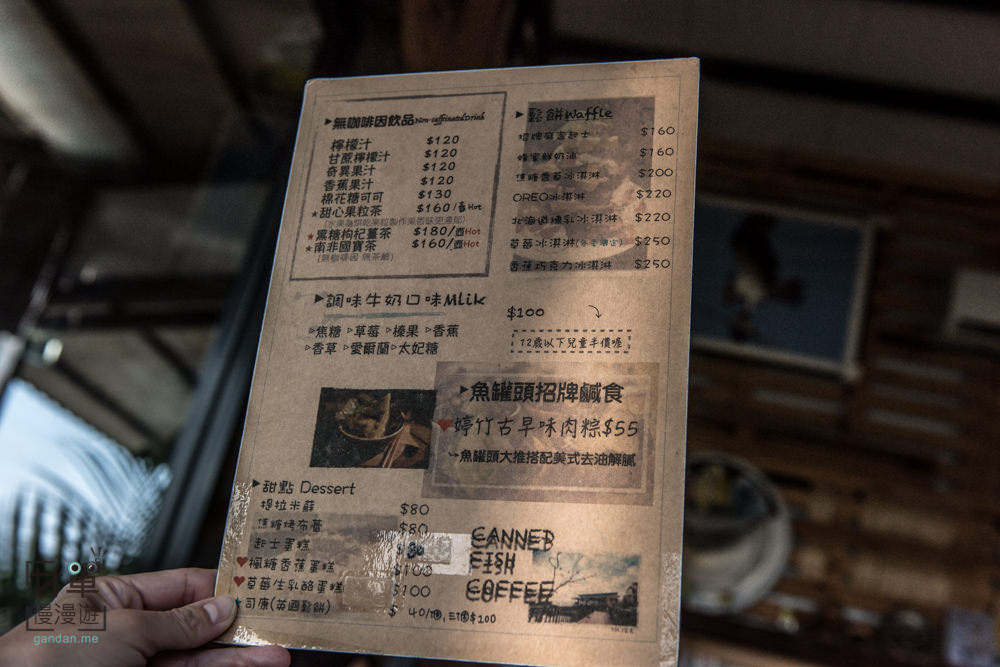 ▶無咖啡因飲品Non-caffeinated Drink
檸檬汁 $120
甘蔗檸檬汁 $120
奇異果汁 $120
香蕉果汁 $120
棉花糖可可 $130
★甜心果粒茶 $160/壺Hot
★黑糖枸杞薑茶 $180/壺Hot
★南非國寶茶 $160/壺Hot
(無咖啡因 無茶鹼)
▶鬆餅Waffle
招牌麻吉起士 $160
蜂蜜鮮奶油 $160
焦糖香草冰淇淋 $200
OREO冰淇淋 $220
北海道煉乳冰淇淋 $220
草莓冰淇淋(冬季限定) $250
香蕉巧克力冰淇淋 $250
▶調味牛奶口味Mlik $100
▷焦糖 ▷草莓 ▷榛果 ▷香蕉
▷香草 ▷愛爾蘭 ▷太妃糖
12歲以下兒童半價喔
▶魚罐頭招牌鹹食
♥婷竹古早味肉粽$55
魚罐頭大推搭配美式去油解膩
▶甜點 Dessert
提拉米蘇 $80
焦糖烤布蕾 $80
起士蛋糕 $80
♥楓糖香蕉蛋糕 $100
♥草莓生乳酪蛋糕 $100
★司康(英國鬆餅) $ 40/1個,三個$100
CANNED
FISH
COFFEE
慢漫遊
gandan.me